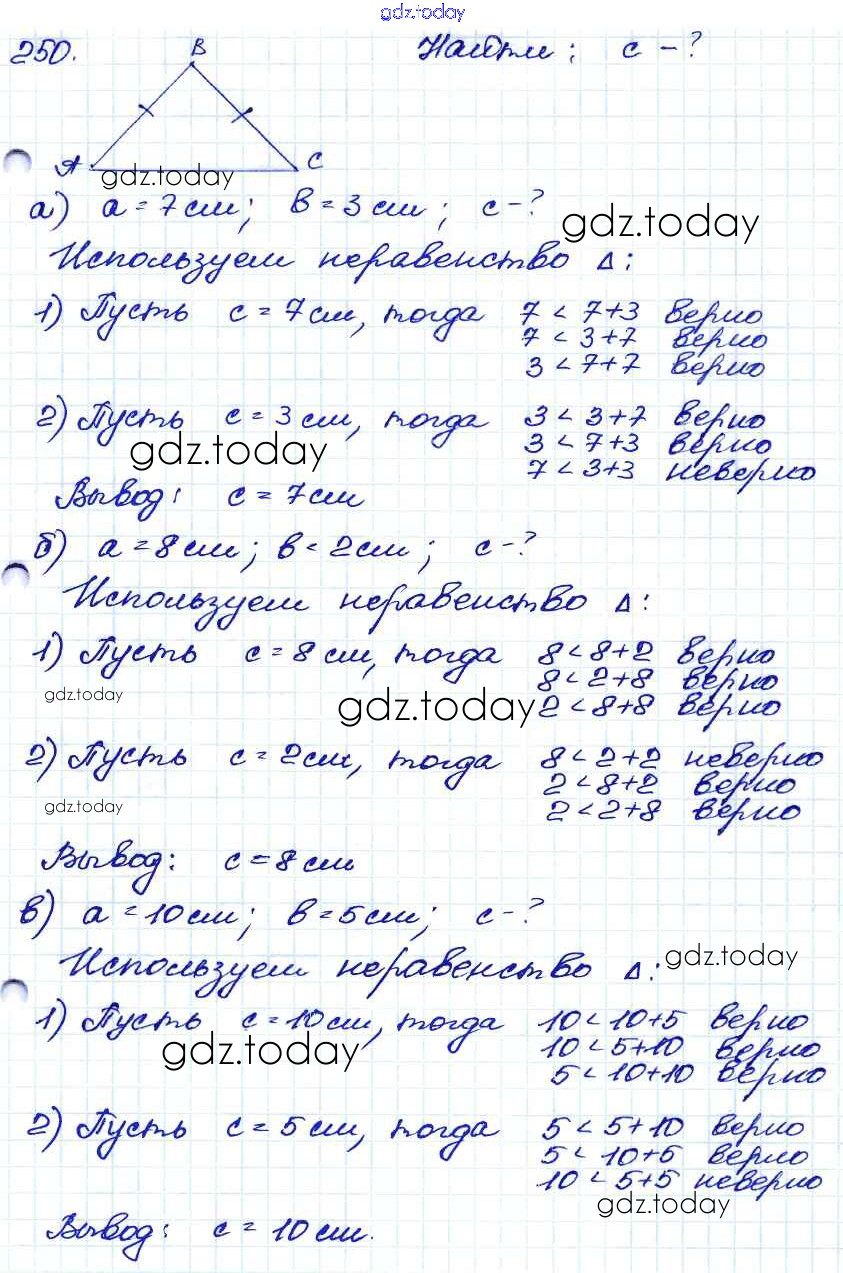 gdz.today
250.
B
Найти: c - ?
A
C
gdz.today
а) a = 7 см; b = 3 см; c - ?
gdz.today
Используем неравенство Δ:
1) Пусть c = 7 см, тогда 7 < 7+3 верно
7 < 3+7 верно
3 < 7+7 верно
2) Пусть c = 3 см, тогда 3 < 3+7 верно
3 < 7+3 верно
gdz.today
7 < 3+3 неверно
Вывод: c = 7 см
б) a = 8 см; b = 2 см; c - ?
Используем неравенство Δ:
1) Пусть c = 8 см, тогда 8 < 8+2 верно
8 < 2+8 верно
gdz.today
gdz.today
2 < 8+8 верно
2) Пусть c = 2 см, тогда 8 < 2+2 неверно
2 < 8+2 верно
gdz.today
2 < 2+8 верно
Вывод: c = 8 см
в) a = 10 см; b = 5 см; c - ?
Используем неравенство Δ:
gdz.today
1) Пусть c = 10 см, тогда 10 < 10+5 верно
10 < 5+10 верно
gdz.today
5 < 10+10 верно
2) Пусть c = 5 см, тогда 5 < 5+10 верно
5 < 10+5 верно
10 < 5+5 неверно
gdz.today
Вывод: c = 10 см.